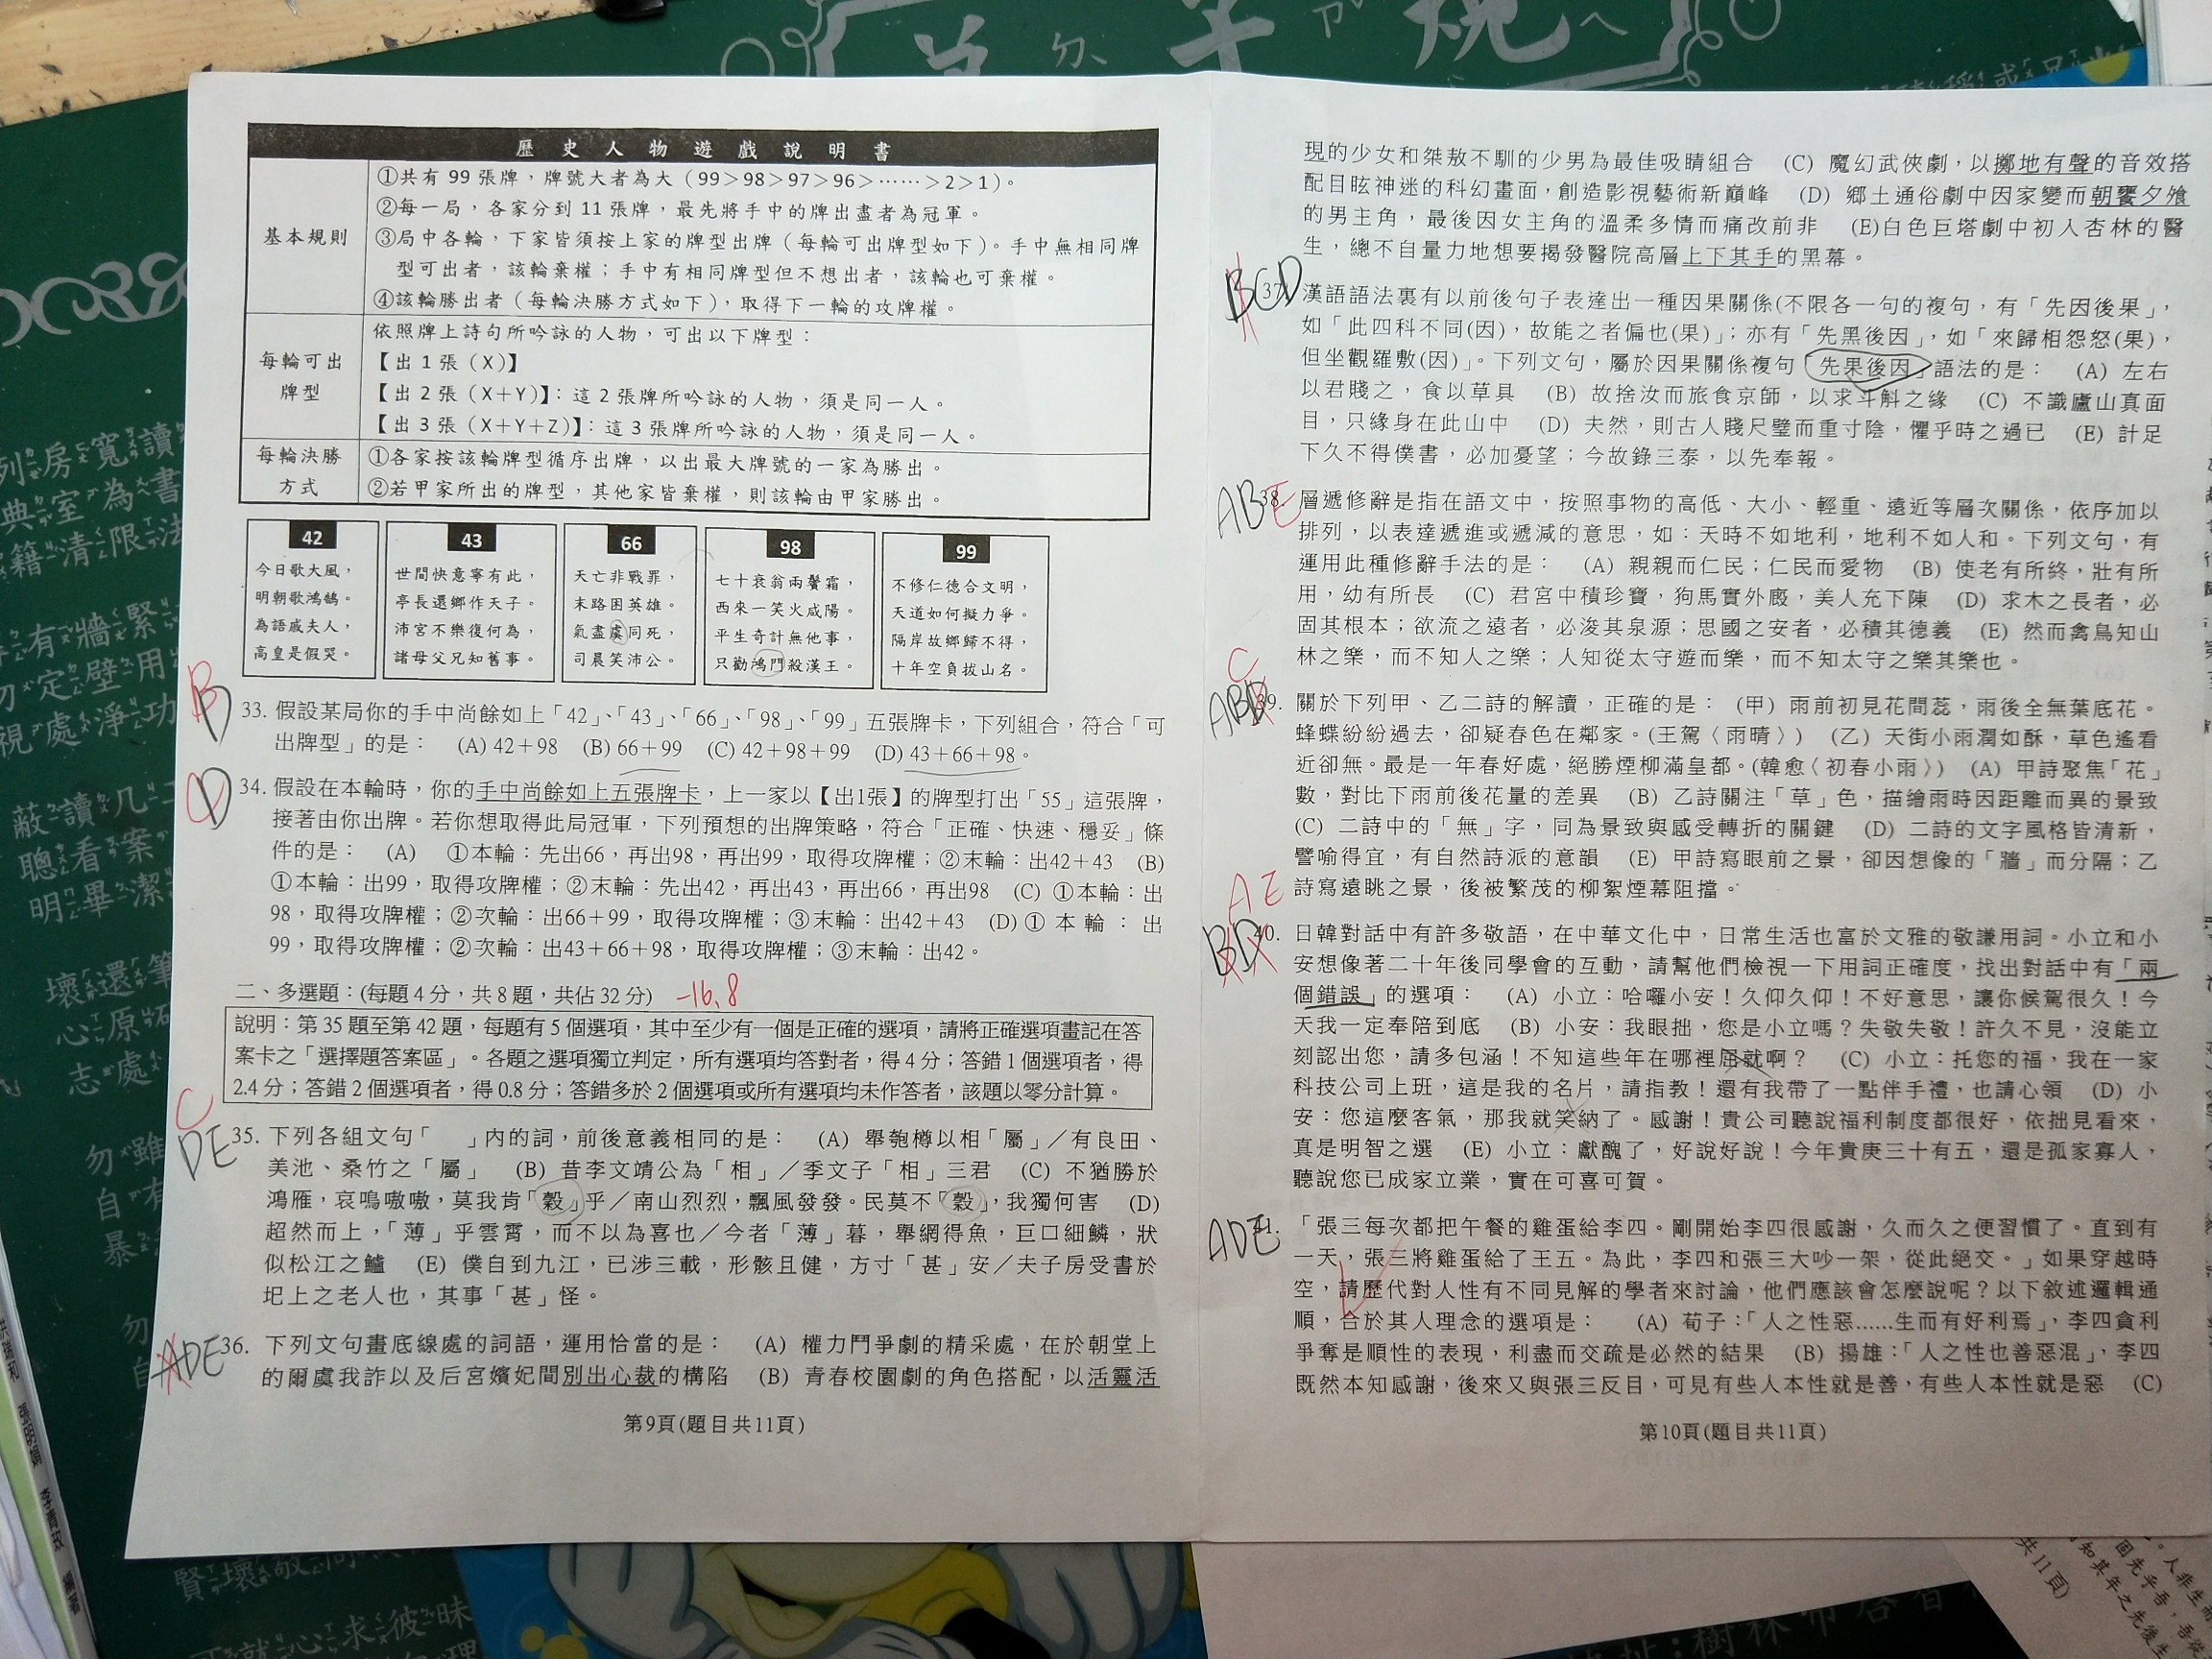 歷史人物遊戲說明書
基本規則
①共有 99 張牌，牌號大者為大（99＞98＞97＞96＞……＞2＞1）。
②每一局，各家分到 11 張牌，最先將手中的牌出盡者為冠軍。
③局中各輪，下家皆須按上家的牌型出牌（每輪可出牌型如下）。手中無相同牌
型可出者，該輪棄權；手中有相同牌型但不想出者，該輪也可棄權。
④該輪勝出者（每輪決勝方式如下），取得下一輪的攻牌權。
每輪可出
牌型
依照牌上詩句所吟詠的人物，可出以下牌型：
【出 1 張（X）】
【出 2 張（X＋Y）】：這 2 張牌所吟詠的人物，須是同一人。
【出 3 張（X＋Y＋Z）】：這 3 張牌所吟詠的人物，須是同一人。
每輪決勝
方式
①各家按該輪牌型循序出牌，以出最大牌號的一家為勝出。
②若甲家所出的牌型，其他家皆棄權，則該輪由甲家勝出。
42
今日歌大風，
明朝歌鴻鵠。
為語戚夫人，
高皇是假哭。
43
世間快意寧有此，
亭長還鄉作天子。
沛宮不樂復何為，
諸母父兄知舊事。
66
天亡非戰罪，
末路困英雄。
氣盡虞同死，
司晨笑沛公。
98
七十衰翁兩鬢霜，
西來一笑火咸陽。
平生奇計無他事，
只勸鴻門殺漢王。
99
不修仁德合文明，
天道如何擬力爭。
隔岸故鄉歸不得，
十年空負拔山名。
B D
33. 假設某局你的手中尚餘如上「42」、「43」、「66」、「98」、「99」五張牌卡，下列組合，符合「可
出牌型」的是： (A) 42＋98 (B) 66＋99 (C) 42＋98＋99 (D) 43＋66＋98。
C D
34. 假設在本輪時，你的手中尚餘如上五張牌卡，上一家以【出1張】的牌型打出「55」這張牌，
接著由你出牌。若你想取得此局冠軍，下列預想的出牌策略，符合「正確、快速、穩妥」條
件的是： (A) ①本輪：先出66，再出98，再出99，取得攻牌權；②末輪：出42＋43 (B)
①本輪：出99，取得攻牌權；②末輪：先出42，再出43，再出66，再出98 (C) ①本輪：出
98，取得攻牌權；②次輪：出66＋99，取得攻牌權；③末輪：出42＋43 (D) ① 本 輪 ： 出
99，取得攻牌權；②次輪：出43＋66＋98，取得攻牌權；③末輪：出42。
二、多選題：(每題 4 分，共 8 題，共佔 32 分) -16.8
說明：第 35 題至第 42 題，每題有 5 個選項，其中至少有一個是正確的選項，請將正確選項畫記在答
案卡之「選擇題答案區」。各題之選項獨立判定，所有選項均答對者，得 4 分；答錯 1 個選項者，得
2.4 分；答錯 2 個選項者，得 0.8 分；答錯多於 2 個選項或所有選項均未作答者，該題以零分計算。
C
DE
35. 下列各組文句「 」內的詞，前後意義相同的是： (A) 舉匏樽以相「屬」／有良田、
美池、桑竹之「屬」 (B) 昔李文靖公為「相」／季文子「相」三君 (C) 不猶勝於
鴻雁，哀嗚嗷嗷，莫我肯「穀」乎／南山烈烈，飄風發發。民莫不「穀」，我獨何害 (D)
超然而上，「薄」乎雲霄，而不以為喜也／今者「薄」暮，舉網得魚，巨口細鱗，狀
似松江之鱸 (E) 僕自到九江，已涉三載，形骸且健，方寸「甚」安／夫子房受書於
圯上之老人也，其事「甚」怪。
ADE
36. 下列文句畫底線處的詞語，運用恰當的是： (A) 權力鬥爭劇的精采處，在於朝堂上
的爾虞我詐以及后宮嬪妃間別出心裁的構陷 (B) 青春校園劇的角色搭配，以活靈活
第9頁(題目共11頁)
現的少女和桀敖不馴的少男為最佳吸睛組合 (C) 魔幻武俠劇，以擲地有聲的音效搭
配目眩神迷的科幻畫面，創造影視藝術新巔峰 (D) 鄉土通俗劇中因家變而朝饔夕飧
的男主角，最後因女主角的溫柔多情而痛改前非 (E)白色巨塔劇中初入杏林的醫
生，總不自量力地想要揭發醫院高層上下其手的黑幕。
BCD
37. 漢語語法裏有以前後句子表達出一種因果關係(不限各一句的複句，有「先因後果」，
如「此四科不同(因)，故能之者偏也(果)」；亦有「先黑後因」，如「來歸相怨怒(果)，
但坐觀羅敷(因)」。下列文句，屬於因果關係複句「先果後因」語法的是： (A) 左右
以君賤之，食以草具 (B) 故捨汝而旅食京師，以求斗斛之緣 (C) 不識廬山真面
目，只緣身在此山中 (D) 夫然，則古人賤尺璧而重寸陰，懼乎時之過已 (E) 計足
下久不得僕書，必加憂望；今故錄三泰，以先奉報。
ABE
38. 層遞修辭是指在語文中，按照事物的高低、大小、輕重、遠近等層次關係，依序加以
排列，以表達遞進或遞減的意思，如：天時不如地利，地利不如人和。下列文句，有
運用此種修辭手法的是： (A) 親親而仁民；仁民而愛物 (B) 使老有所終，壯有所
用，幼有所長 (C) 君宮中積珍寶，狗馬實外廄，美人充下陳 (D) 求木之長者，必
固其根本；欲流之遠者，必浚其泉源；思國之安者，必積其德義 (E) 然而禽鳥知山
林之樂，而不知人之樂；人知從太守遊而樂，而不知太守之樂其樂也。
C
ABD
39. 關於下列甲、乙二詩的解讀，正確的是： (甲) 雨前初見花間蕊，雨後全無葉底花。
蜂蝶紛紛過去，卻疑春色在鄰家。(王駕〈雨晴〉) (乙) 天街小雨潤如酥，草色遙看
近卻無。最是一年春好處，絕勝煙柳滿皇都。(韓愈〈初春小雨〉) (A) 甲詩聚焦「花」
數，對比下雨前後花量的差異 (B) 乙詩關注「草」色，描繪雨時因距離而異的景致
(C) 二詩中的「無」字，同為景致與感受轉折的關鍵 (D) 二詩的文字風格皆清新，
譬喻得宜，有自然詩派的意韻 (E) 甲詩寫眼前之景，卻因想像的「牆」而分隔；乙
詩寫遠眺之景，後被繁茂的柳絮煙幕阻擋。
A E
BD
40. 日韓對話中有許多敬語，在中華文化中，日常生活也富於文雅的敬謙用詞。小立和小
安想像著二十年後同學會的互動，請幫他們檢視一下用詞正確度，找出對話中有「兩
個錯誤」的選項： (A) 小立：哈囉小安！久仰久仰！不好意思，讓你候駕很久！今
天我一定奉陪到底 (B) 小安：我眼拙，您是小立嗎？失敬失敬！許久不見，沒能立
刻認出您，請多包涵！不知這些年在哪裡屈就啊？ (C) 小立：托您的福，我在一家
科技公司上班，這是我的名片，請指教！還有我帶了一點伴手禮，也請心領 (D) 小
安：您這麼客氣，那我就笑納了。感謝！貴公司聽說福利制度都很好，依拙見看來，
真是明智之選 (E) 小立：獻醜了，好說好說！今年貴庚三十有五，還是孤家寡人，
聽說您已成家立業，實在可喜可賀。
ADE
41. 「張三每次都把午餐的雞蛋給李四。剛開始李四很感謝，久而久之便習慣了。直到有
一天，張三將雞蛋給了王五。為此，李四和張三大吵一架，從此絕交。」如果穿越時
空，請歷代對人性有不同見解的學者來討論，他們應該會怎麼說呢？以下敘述邏輯通
順，合於其人理念的選項是： (A) 荀子：「人之性惡……生而有好利焉」，李四貪利
爭奪是順性的表現，利盡而交疏是必然的結果 (B) 揚雄：「人之性也善惡混」，李四
既然本知感謝，後來又與張三反目，可見有些人本性就是善，有些人本性就是惡 (C)
第10頁(題目共11頁)